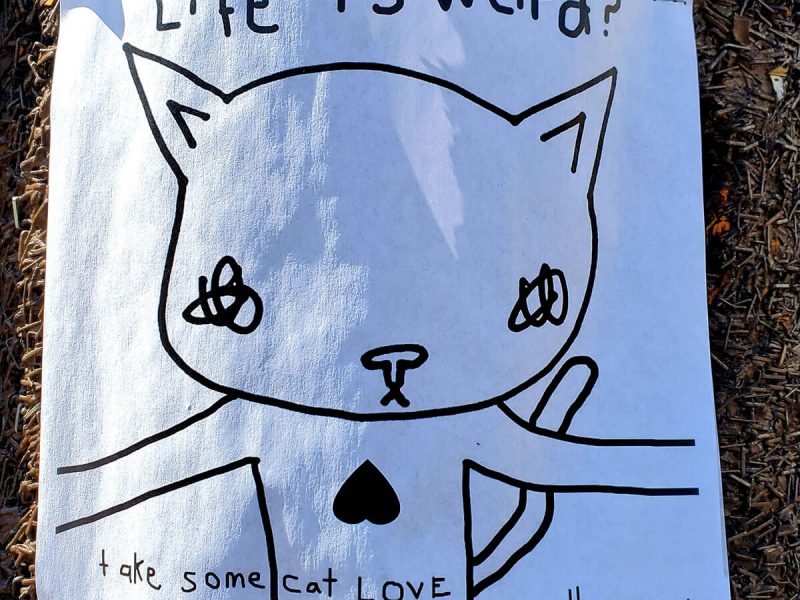 Life is weird?
take some cat LOVE